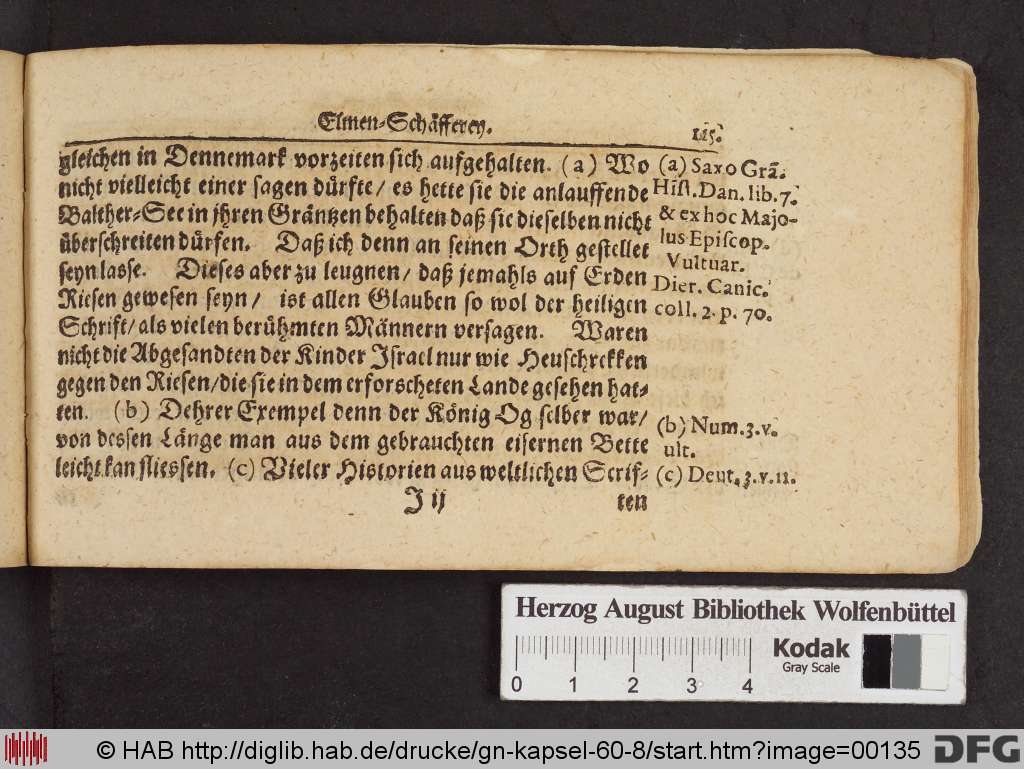 Elmen-Schäfferey.
115.
gleichen in Dennemark vorzeiten sich aufgehalten. (a) Wo
nicht vielleicht einer sagen dürfte/ es hette sie die anlauffende
Balther-See in jhren Gräntzen behalten daß sie dieselben nicht
überschreiten dürfen. Daß ich denn an seinen Orth gestellet
seyn lasse. Dieses aber zu leugnen/ daß jemahls auf Erden
Riesen gewesen seyn/ ist allen Glauben so wol der heiligen
Schrift/ als vielen berühmten Männern versagen. Waren
nicht die Abgesandten der Kinder Israel nur wie Heuschrekken
gegen den Riesen/ die sie in dem erforscheten Lande gesehen hat-
ten. (b) Dehrer Exempel denn der König Og selber war/
von dessen Länge man aus dem gebrauchten eisernen Bette
leicht kan sliessen. (c) Vieler Historien aus weltlichen Scrif-
J ij
ten
(a) Saxo Grã.
Hist. Dan. lib. 7.
& ex hoc Majo-
lus Episcop.
Vultuar.
Dier. Canic.
coll. 2. p. 70.
(b) Num. 3. v.
ult.
(c) Deut. 3. v. 11.
Herzog August Bibliothek Wolfenbüttel
0 1 2 3 4
Kodak
Gray Scale
© HAB http://diglib.hab.de/drucke/gn-kapsel-60-8/start.htm?image=00135
DFG